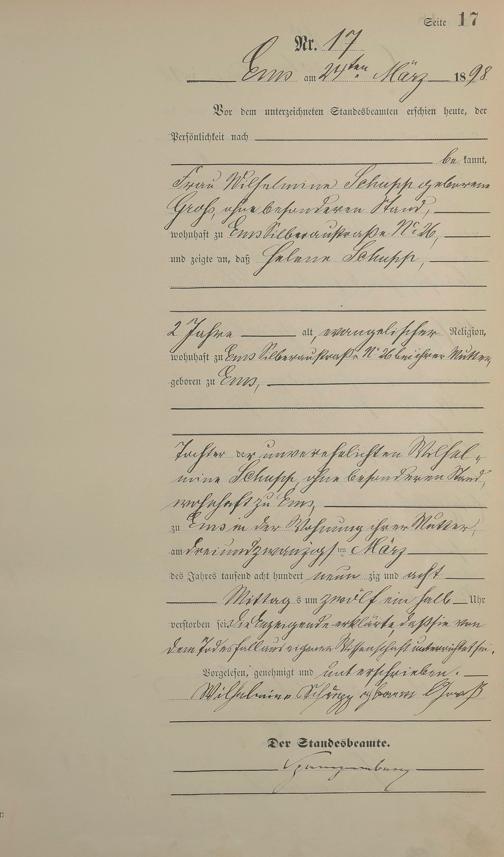 Seite 17
Nr. 17
Ems am 24ten März 1898
Vor dem unterzeichneten Standesbeamten erschien heute, der
Persönlichkeit nach
be kannt,
Frau Wilhelmine Schupp geborene
Groß, ohne besonderen Stand,
wohnhaft zu Ems Silberaustraße No 26,
und zeigte an, daß Helene Schupp,
2 Jahre alt, evangelischer Religion,
wohnhaft zu Ems Silberaustraße No 26 bei ihrer Mutter,
geboren zu Ems,
Tochter der unverehelichten Wilhel-
mine Schupp, ohne besonderen Stand,
wohnhaft zu Ems,
zu Ems in der Wohnung ihrer Mutter,
am dreiundzwanzigsten März
des Jahres tausend acht hundert neun zig und acht
Mittags um zwölf ein halb Uhr
verstorben sei. Die Anzeigende erklärte, daß sie von
dem Todesfall aus eigener Wissenschaft unterrichtet sei.
Vorgelesen, genehmigt und unterschrieben.
Wilhelmine Schupp geborene Groß
Der Standesbeamte.